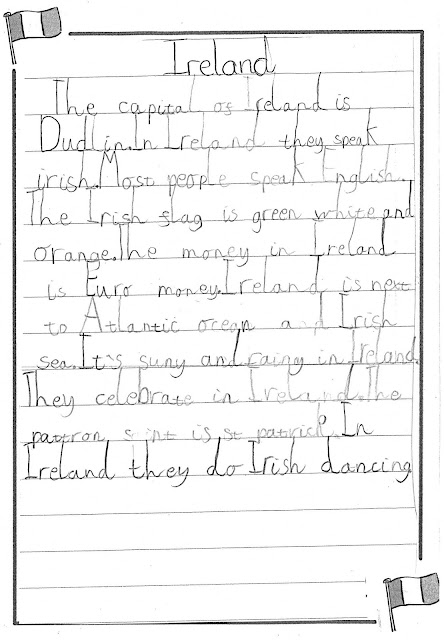 Ireland
The capital of Ireland is
Dudlin.In Ireland they speak
irish.Most people speak English.
The Irish flag is green white and
orange.The money in Ireland
is Euro money.Ireland is next
to Atlantic ocean and Irish
sea.It's suny and rainy in Ireland.
They celebrate in Ireland.The
patron saint is st patrick.In
Ireland they do Irish dancing